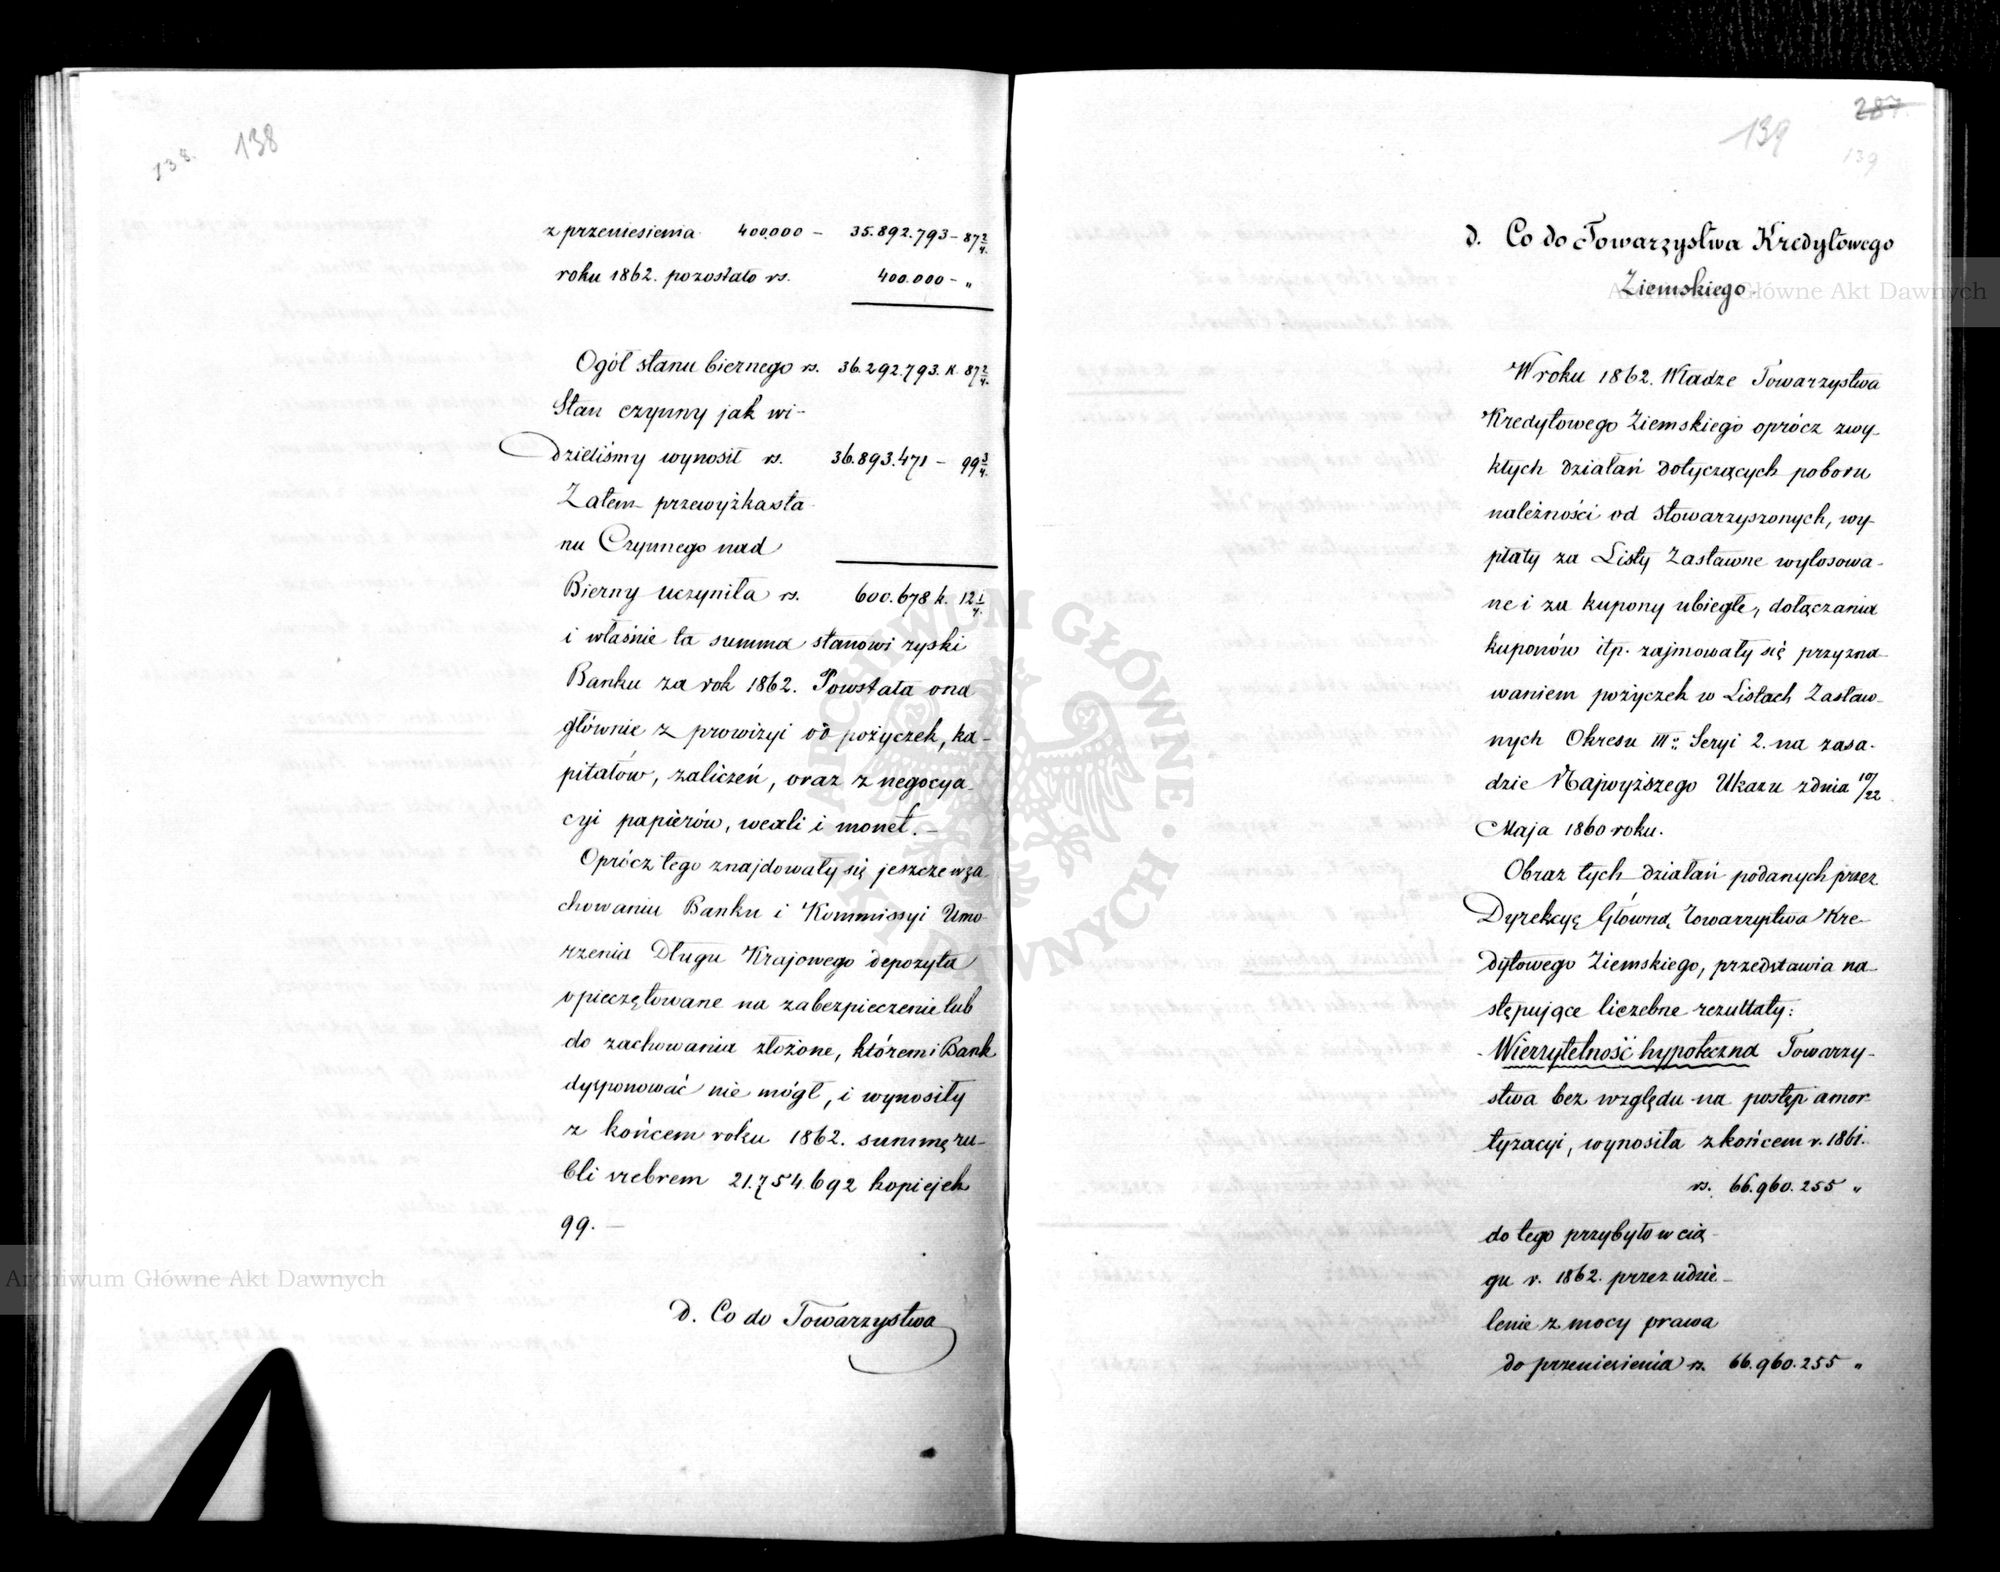 138.
138
z przeniesienia 400.000 – 35.892.793 – 87 2/4.
roku 1862. pozostało rs. 400.000 – "
Ogół stanu biernego rs. 36.292.793. k. 87 2/4.
Stan czynny jak wi-
dzieliśmy wynosił rs. 36.893.471 – 99 3/4.
Zatem przewyżka sta-
nu Czynnego nad
Bierny uczyniła rs. 600.678 k. 12 1/4.
i właśnie ta summa stanowi zyski
Banku za rok 1862. Powstała ona
głównie z prowizyi od pożyczek, ka-
pitałów, zaliczeń, oraz z negocya-
cyi papierów, wexli i monet. –
Oprócz tego znajdowały się jeszcze w za-
chowaniu Banku i Kommissyi Umo-
rzenia Długu Krajowego depozyta
opieczętowane na zabezpieczenie lub
do zachowania złożone, któremi Bank
dysponować nie mógł, i wynosiły
z końcem roku 1862. summę ru-
bli srebrem 21.754.692 kopiejek
99. –
d. Co do Towarzystwa
287.
139
139
d. Co do Towarzystwa Kredytowego
Ziemskiego.
W roku 1862. Władze Towarzystwa
Kredytowego Ziemskiego oprócz zwy-
kłych działań dotyczących poboru
należności od stowarzyszonych, wy-
płaty za Listy Zastawne wylosowa-
ne i za kupony ubiegłe, dołączania
kuponów itp. zajmowały się przyzna-
waniem pożyczek w Listach Zastaw-
nych Okresu III: Seryi 2. na zasa-
dzie Najwyższego Ukazu z dnia 10/22
Maja 1860 roku.
Obraz tych działań podanych przez
Dyrekcyę Główną Towarzystwa Kre-
dytowego Ziemskiego, przedstawia na-
stępujące liczebne rezultaty:
- Wierzytelność hypoteczna Towarzy-
stwa bez względu na postęp amor-
tyzacyi, wynosiła z końcem r. 1861.
rs. 66.960.255 "
do tego przybyło w cią-
gu r. 1862. przez udzie-
lenie z mocy prawa
do przeniesienia rs. 66.960.255 "
Archiwum Główne Akt Dawnych
Archiwum Główne Akt Dawnych
ARCHIWUM GŁÓWNE · AKT DAWNYCH ·